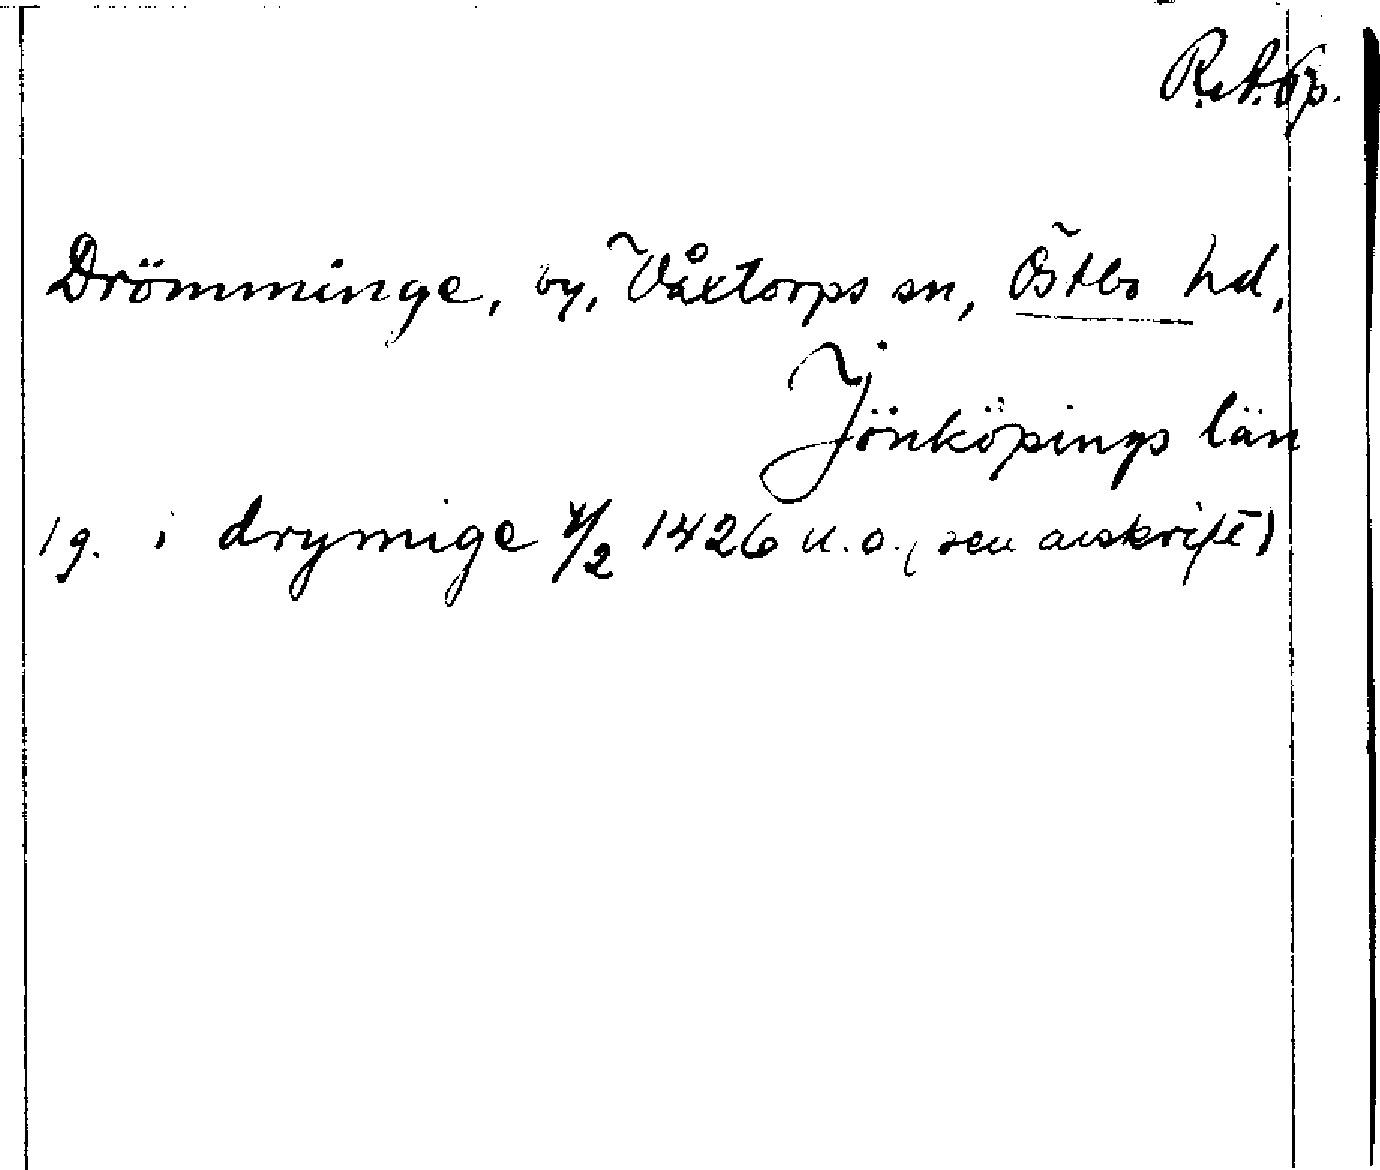 R.A.p.
Drömminge, by, Våxtorps sn, Östbo hd,
Jönköpings län
1 g. i drymige 4/2 1426 u.o. (sen avskrift)